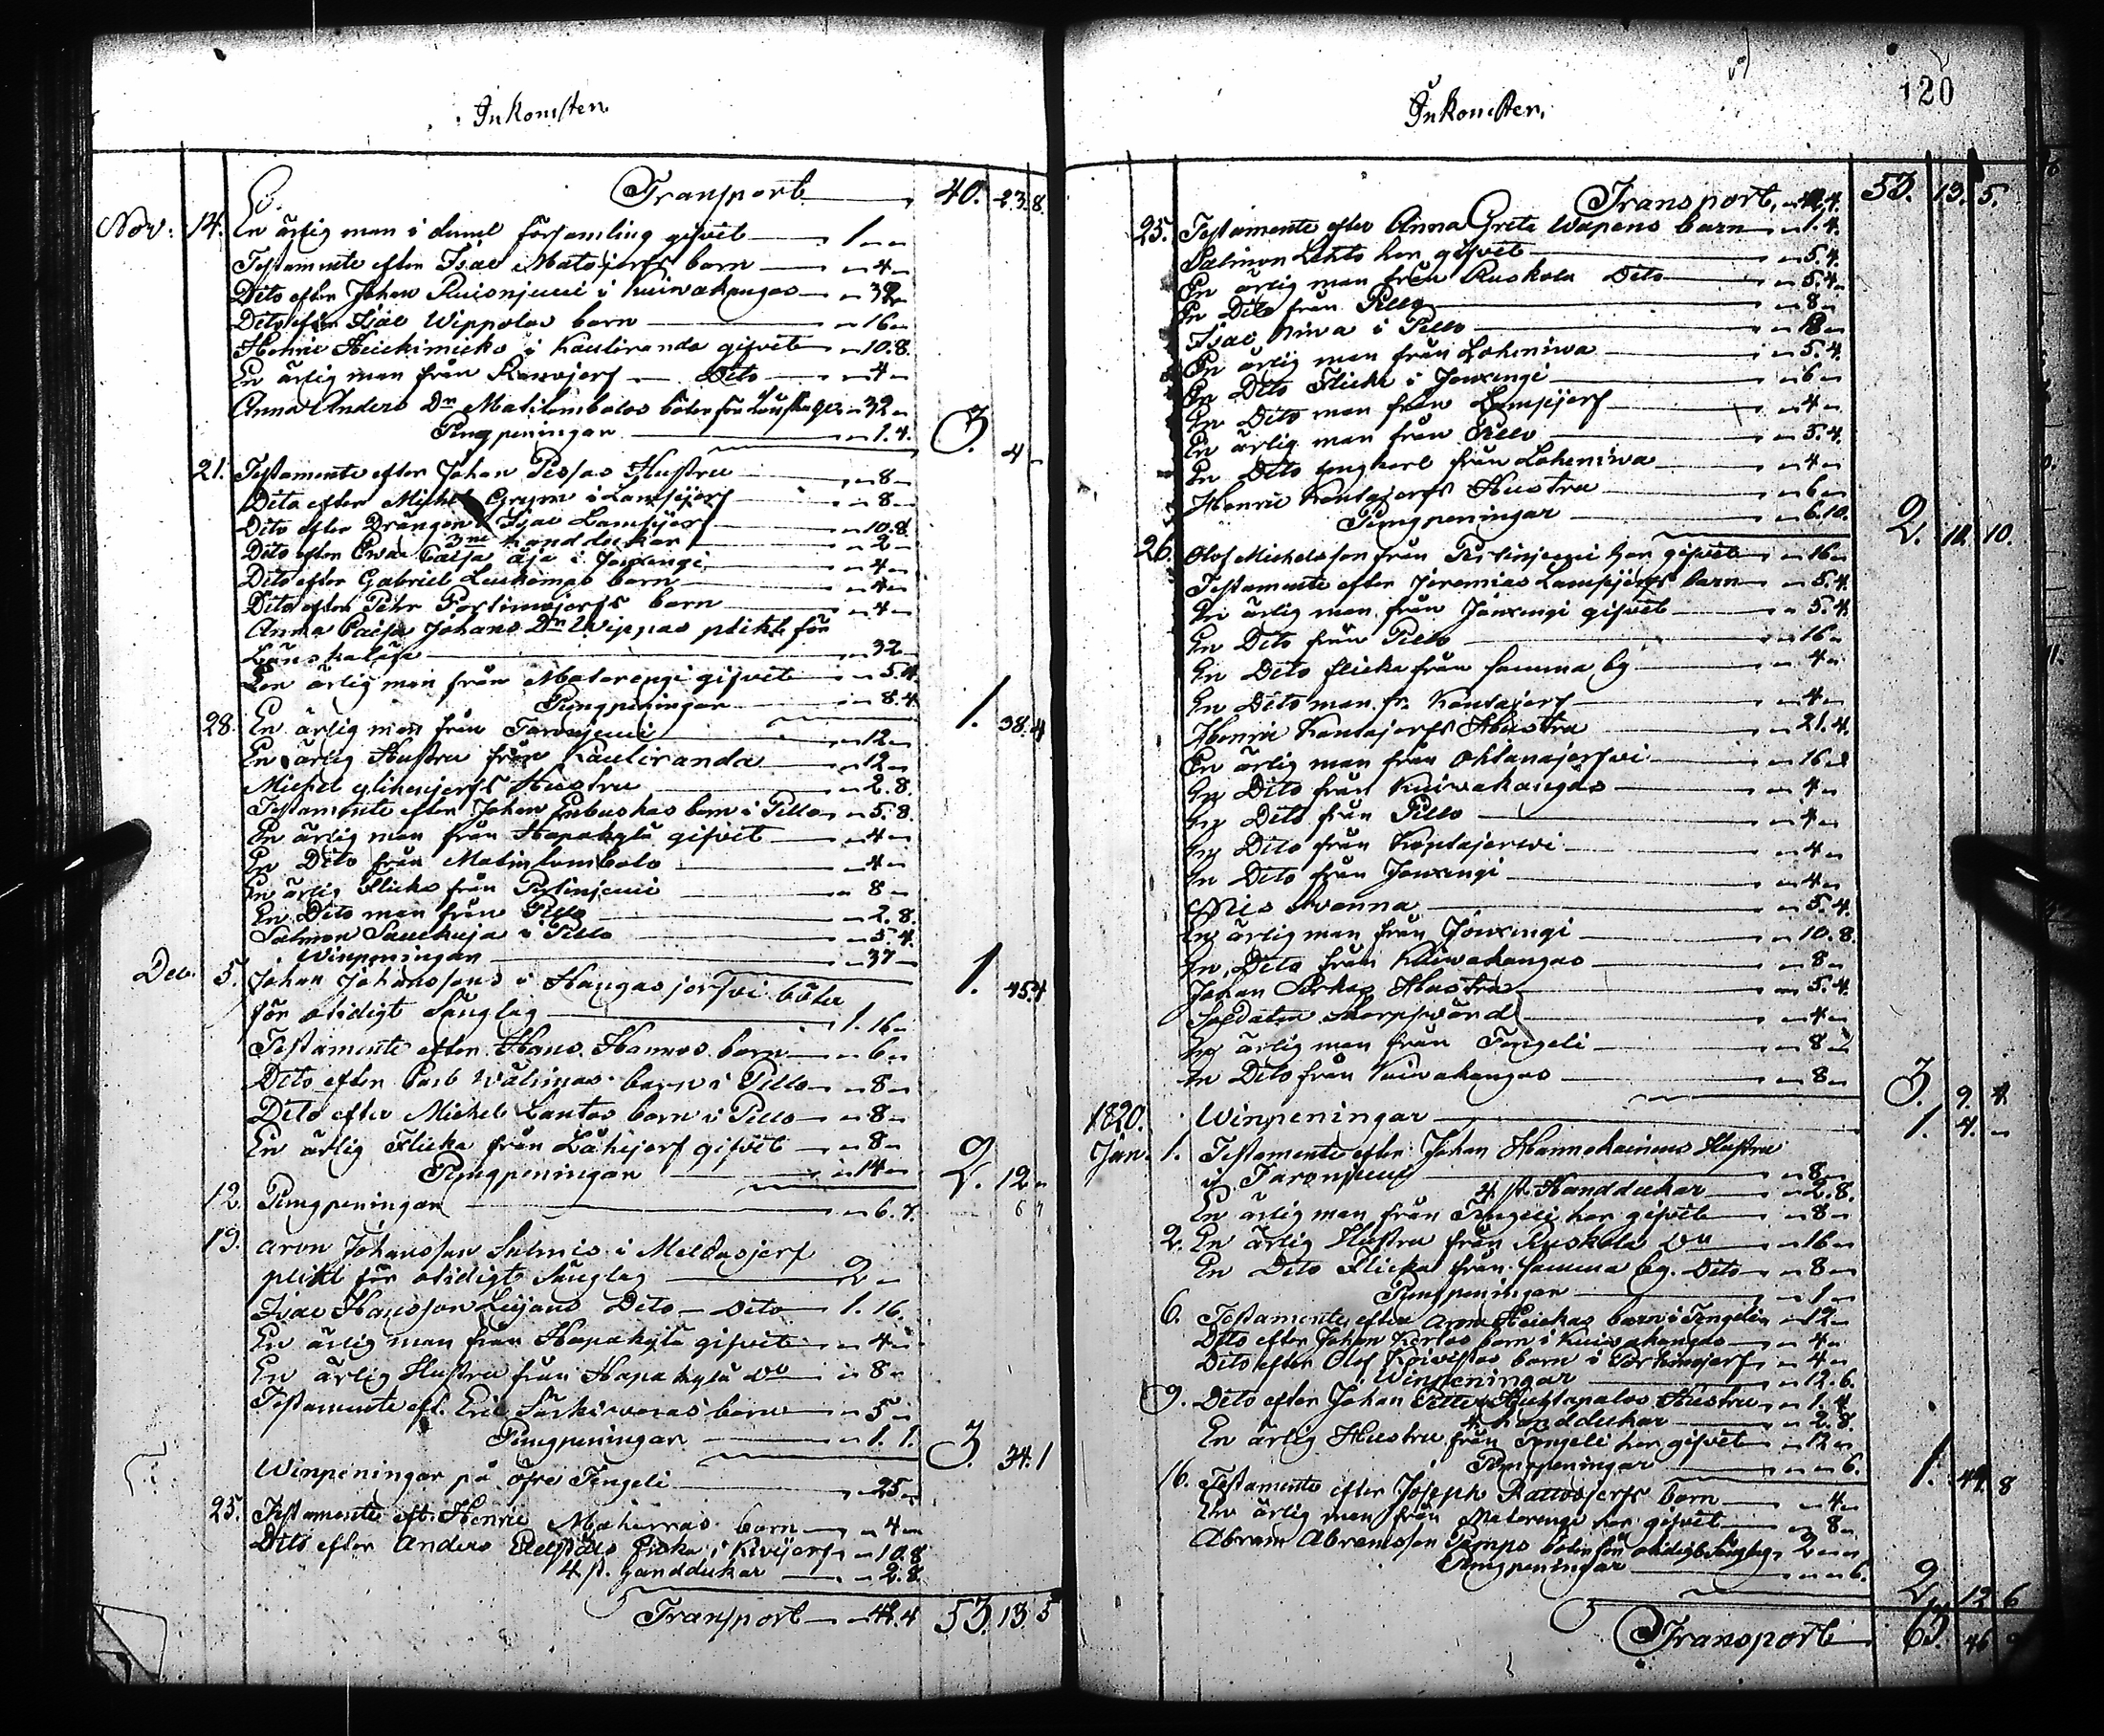 Inkomsten.
Transport 40. 23. 8.
Nov. 14. En ärlig man i denne församling gifvit 1 „ „
Testamente efter Isac Matojerfs barn „ 4 „
Dito efter Johan Ruisnjemi i Kuivakangas „ 32 „
Dito efter Isac Wippolas barn „ 16 „
Henric Heickimicko i Kauliranda gifvit „ 10. 8.
En ärlig man från Rawojerf Dito „ 4 „
Anna Anders Dr Matilombolos böter för „ 32 „
Pungpeningar „ 1. 4. 3. 4 „
21. Testamente efter Johan Pessas Hustru „ 8 „
Dito efter Michel Grym i Lampijerf „ 8 „
Dito efter Drängen Isac Lampijerf „ 10. 8.
3ne handdukar „ 2 „
Dito efter Caisa äja i Jouxengi „ 4 „
Dito efter Gabriel barn „ 4 „
Dito efter Petter Portimojerfs barn „ 4 „
Anna Caisa Johans Dr Wippas plikt för
Lönskaläge „ 32 „
En ärlig man från Matarengi gifvit „ 5. 4.
Pungpeningar „ 8. 4. 1. 38. 4
28. En ärlig man från Taronjemi „ 12 „
En ärlig Hustru från Kauliranda „ 12 „
Michel Hustru „ 2. 8.
Testamente efter Johan barn i Pello „ 5. 8.
En ärlig man från Hapakylä gifvit „ 4 „
En Dito från Matinlombolo „ 4 „
En ärlig Flicka från Portinjemi „ 8 „
En Dito man från Pello „ 2. 8.
Salmon Sauckuja i Pello „ 5. 4.
Winpeningar „ 37 „ 1. 45. 4
Dec. 5. Johan Johanssons i Kangasjerfvi böter
för otidigt Sänglag 1. 16 „
Testamente efter Hans Hannos barn „ 6 „
Dito efter barn i Pello „ 8 „
Dito efter Michel Lantos barn i Pello „ 8 „
En ärlig Flicka från Låhijerf gifvit „ 8 „
Pungpeningar „ 14 „ 2. 12 „
12. Pungpeningar „ 6. 7. 6 7
19. Aron Johansson Salmis i Meldasjerf
plikt för otidigt Sänglag 2 „
Isac Hansson Dito Dito 1. 16.
En ärlig man från Hapakylä gifvit „ 4 „
En ärlig Hustru från Hapakylä Do „ 8 „
Testamente eft. Eric Särkivaras barn „ 5 „
Pungpeningar „ 1. 1. 3. 34. 1
Winpeningar på öfre Tengeli „ 25 „
25. Testamente eft. Henric barn „ 4 „
Dito efter Anders i „ 10. 8
4 st. handdukar „ 2. 8.
Transport „ 44. 4 53. 13. 5
120
Inkomsten.
Transport, „ 44. 4. 53. 13. 5.
25. Testamente efter Anna Greta Wapens barn „ 1. 4.
Salmon Lehto har gifvit „ 5. 4.
En ärlig man från Ruskola Dito „ 5. 4.
En Dito från Pello „ 8 „
Isac Niva i Pello „ 8 „
En ärlig man från Loheniwa „ 5. 4.
En Dito Flicka i Jouxengi „ 6 „
En Dito man från Lampijerf „ 4 „
En ärlig man från Pello „ 5. 4.
En Dito från Loheniwa „ 4 „
Henric Kondajerfs Hustru „ 6 „
Pungpeningar „ 6. 10. 2. 10.
26. Olof Michelsson från Portinjemi har gifvit „ 16 „
Testamente efter Jeremias Lampijerfs barn „ 5. 4.
En ärlig man från Jouxengi gifvit „ 5. 4.
En Dito från Pello „ 16 „
En Dito flicka från samma by „ 4 „
En Dito man fr. Kondajerf „ 4 „
Henric Kondajerfs Hustru „ 21. 4.
En ärlig man från Ohtanajerfvi „ 16 „
En Dito från Kuivakangas „ 4 „
En Dito från Pello „ 4 „
En Dito från Kondajerwi „ 4 „
En Dito från Jouxengi „ 4 „
Nis Avanna „ 5. 4.
En ärlig man från Jouxengi „ 10. 8.
En Dito från Kuivakangas „ 8 „
Johan Hustru „ 5. 4.
Soldaten „ 4 „
En ärlig man från Tengeli „ 8 „
En Dito från Kuivakangas „ 8 „
3. 9. 4
1820. Winpeningar 1. 4. „
Jan. 1. Testamente efter Johan Hannokainens Hustru
i Taronjemi „ 8 „
4 st. Handdukar „ 2. 8.
En ärlig man från Tengeli har gifvit „ 8 „
2. En ärlig Hustru från Ruskola Do „ 16 „
En Dito Flicka från samma by. Dito „ 8 „
Pungpeningar „ 1 „
6. Testamente efter Aron Heickas barn i Tengeli „ 12 „
Dito efter Johan barn i Kuivakangas „ 4 „
Dito efter Olof Koivistos barn i Portimojerf „ 4 „
Winpeningar „ 12. 6.
9. Dito efter Johan Petter Huhtapalos Hustru „ 1. 4
4 handdukar „ 2. 8.
En ärlig Hustru från Tengeli har gifvit „ 12 „
Pungpeningar „ „ 6. 1. 44. 8
16. Testamente efter Joseph Rattosjerfs barn „ 4 „
En ärlig man från Matarengi har gifvit „ 8 „
Abram Abramsson böter för otidigt Sänglag 2 „ „
Pungpeningar „ „ 6.
2. 12 6
Transport 63. 46